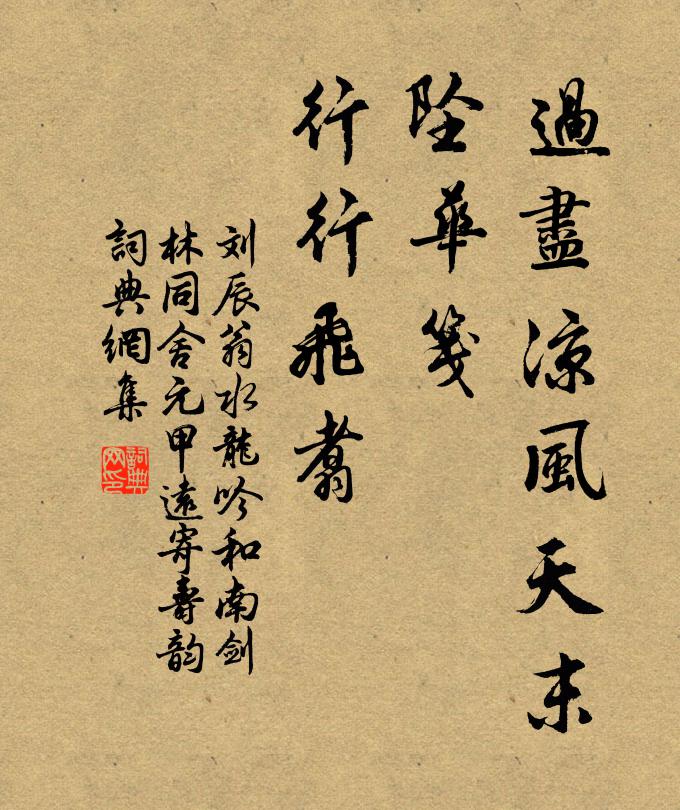 過盡凉風天末
墜華箋
行行飛翥
刘辰翁水龍吟和南剑
林同舍元甲遠寄壽韵
詞典網集
詞典
网印